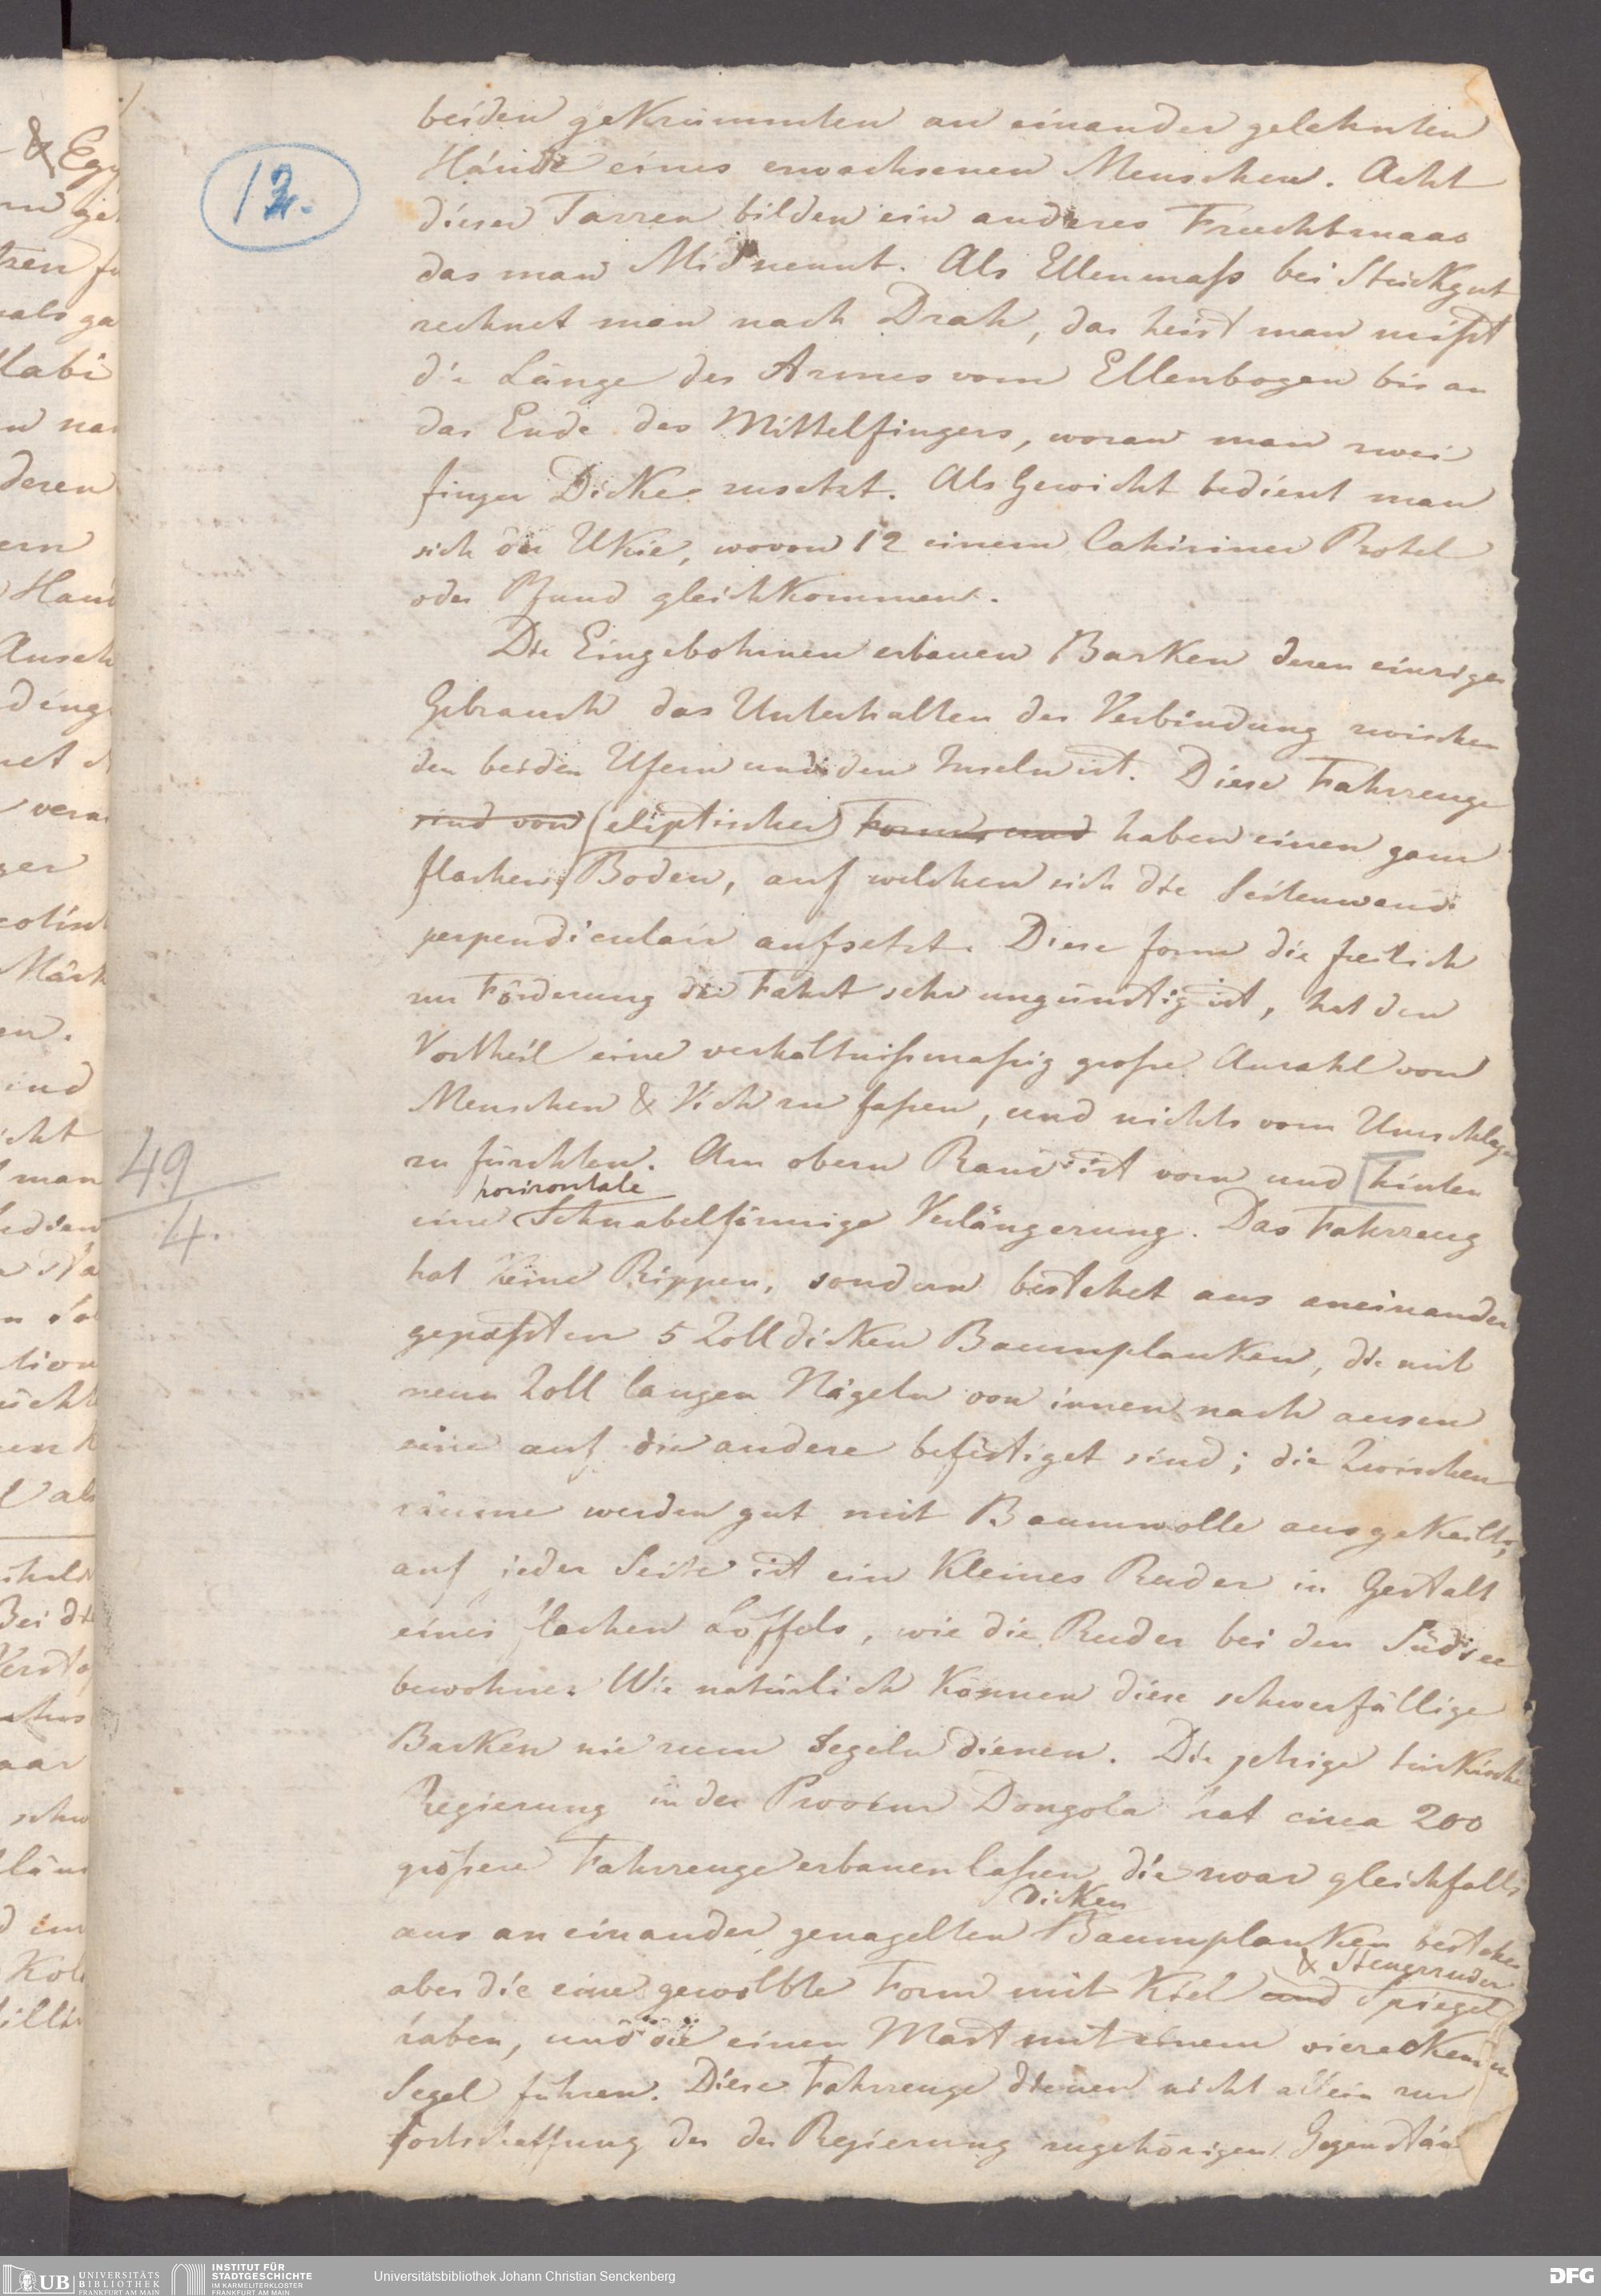 12.
beiden gekrümmten an einander gelehnten
Hände eines erwachsenen Menschen. Acht
dieser Tassen bilden ein anderes Fruchtmaas
das man Mid nennt. Als Ellenmaß bei Stückgut
rechnet man nach Drah, das heist man mißt
die Länge des Armes vom Ellenbogen bis an
das Ende des Mittelfingers, woran man zwei
finger Dicke zusetzt. Als Gewicht bedient man
sich der Ukie, wovon 12 einem Cahiriner Rotel
oder Pfund gleichkommen.
Die Eingebohrnen erbauen Barken deren einziger
Gebrauch das Unterhalten der Verbindung zwischen
den beiden Ufern und den Inseln ist. Diese Fahrzeuge
sind von (eliptischer) Form und haben einen ganz
flachen Boden, auf welchen sich die Seitenwand
perpendiculair aufsetzt. Diese form die freilich
zur Förderung der Fahrt sehr ungünstig ist, hat den
Vortheil eine verhaltnißmaßig große Anzahl von
Menschen & Vieh zu faßen, und nichts vom Umschlagen
zu fürchten. Am obern Rand ist vorn und [hinten
49
4.
horizontale
eine Schnabelförmige Verlängerung. Das Fahrzeug
hat keine Rippen, sondern bestehet aus aneinander
gepaßten 5 Zoll dicken Baumplanken, die mit
neun Zoll langen Nägeln von innen nach ausen
eine auf die andere befestiget sind; die Zwischen
räume werden gut mit Baumwolle ausgekeilt,
auf jeder Seite ist ein kleines Ruder in Gestalt
eines flachen Löffels, wie die Ruder bei den Südsee
bewohner. Wie natürlich können diese schwerfällige
Barken nie zum Segeln dienen. Die jetzige türkische
Regierung in der Provinz Dongola hat circa 200
größere Fahrzeuge erbauen laßen die zwar gleichfalls
dicken
aus an einander genagelten Baumplanken bestehen
& Steuerruder
aber die eine gewölbte Form mit Kiel und Spiegel
haben, und die einen Mast mit einem viereckenen
Segel führen. Diese Fahrzeuge dienen nicht allein zur
fortschaffung der der Regierung zugehörigen Gegenstän
UB UNIVERSITÄTS BIBLIOTHEK FRANKFURT AM MAIN
INSTITUT FÜR STADTGESCHICHTE IM KARMELITERKLOSTER FRANKFURT AM MAIN
Universitätsbibliothek Johann Christian Senckenberg
DFG